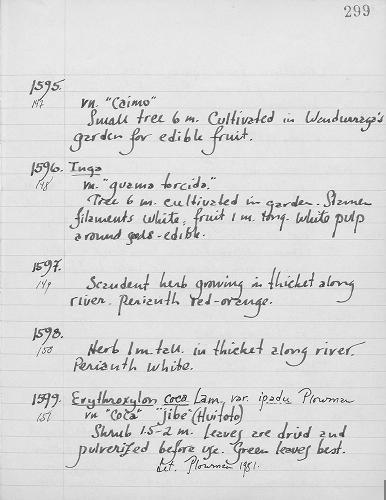 299
1595.
147 vn. "Caimo"
Small tree 6 m. Cultivated in
garden for edible fruit.
1596. Inga
148 vn. "guama torcida."
Tree 6 m. cultivated in garden. Stamen
filaments white; fruit 1 m. long. White pulp
around - edible.
1597.
149 Scandent herb growing in thicket along
river. Perianth red-orange.
1598.
150 Herb 1 m tall. in thicket along river.
Perianth white.
1599. Erythroxylon coca Lam. var. ipadu Plowman
151 vn "Coca" "jibe" (Huitoto)
Shrub 1.5-2 m. Leaves are dried and
pulverized before use. Green leaves best.
det. Plowman 1981.